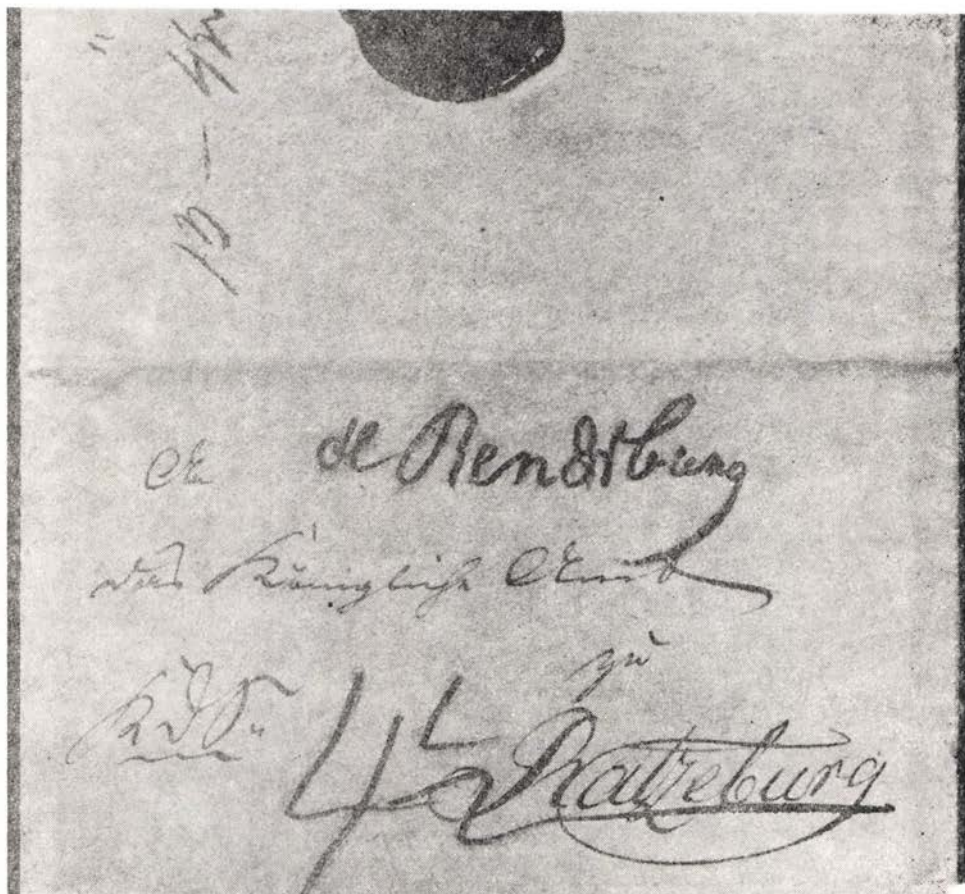 de Rendsburg
An
das Königliche Amt
zu
K.D.S.
Ratzeburg